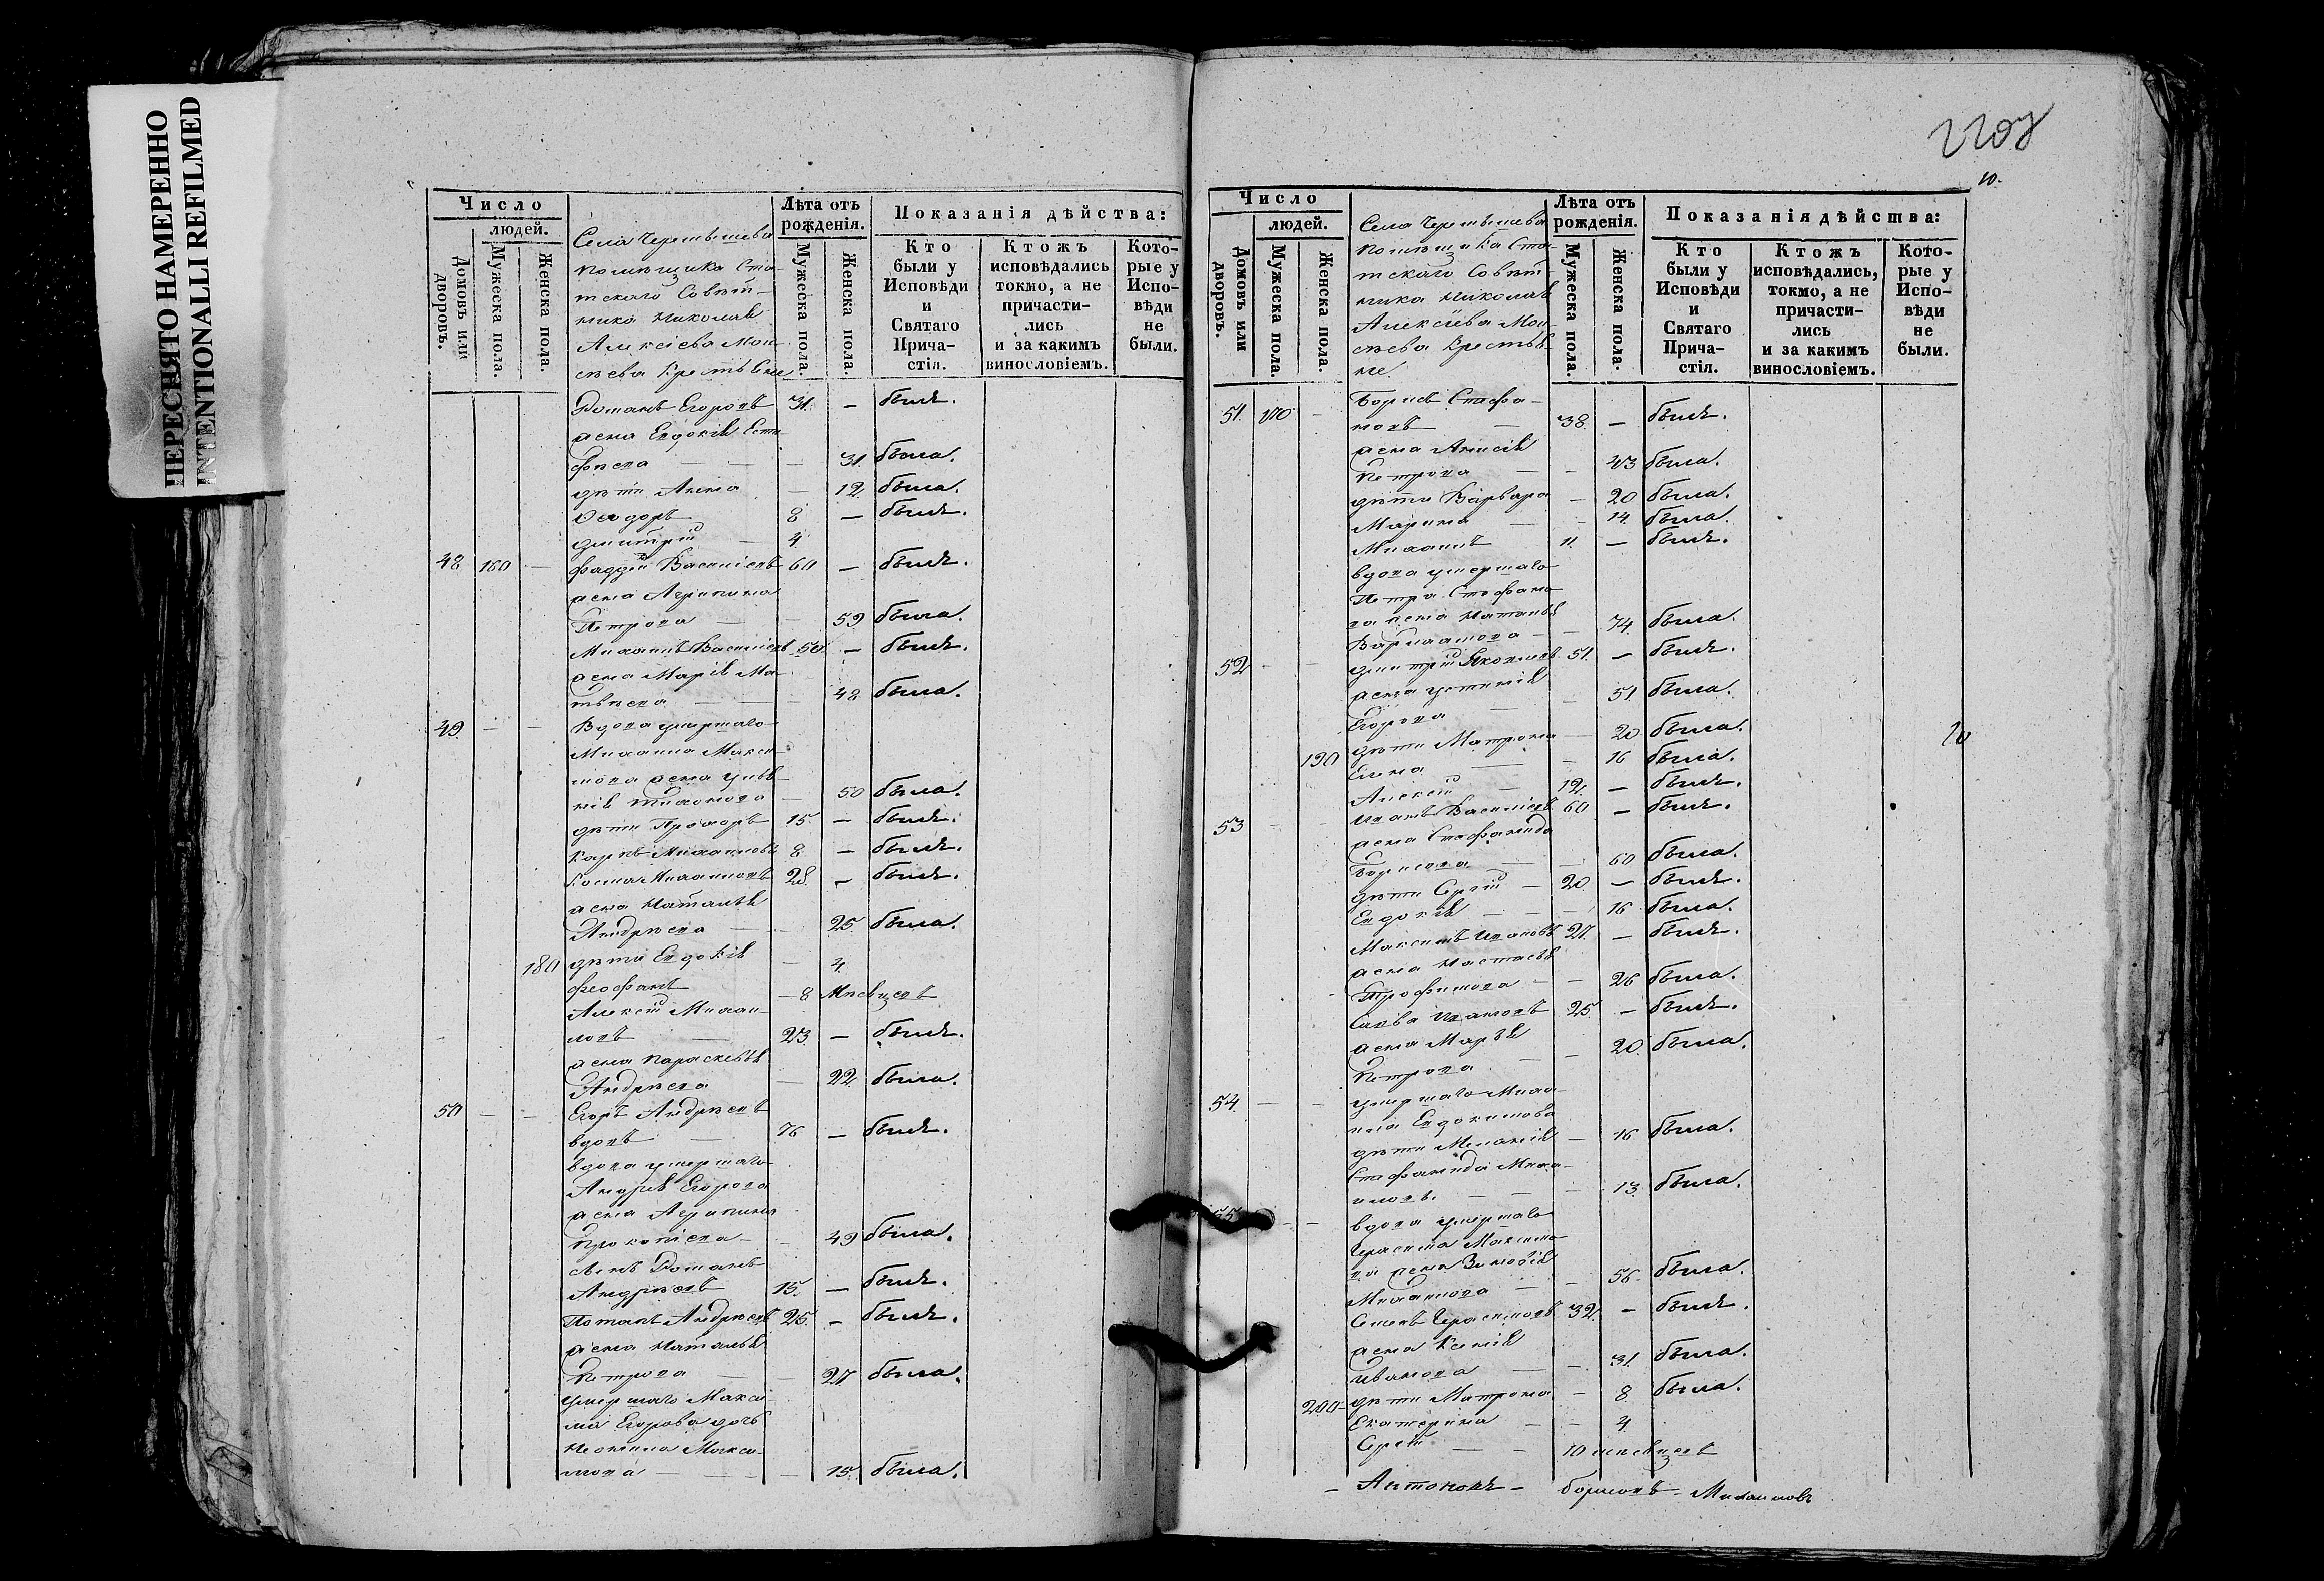 ПЕРЕСНЯТО НАМЕРЕННО
INTENTIONALLI REFILMED
Число
людей.
Домовъ или дворовъ.
Мужеска пола.
Женска пола.
Села
помѣщика Ста-
тскаго Совѣт-
ника Николая
Алексѣева Мои-
сѣева Крестьяне
Лѣта отъ рожденія.
Мужеска пола.
Женска пола.
Показанія дѣйства:
Кто были у Исповѣди и Святаго Прича-стія.
Ктожъ исповѣдались токмо, а не причасти-лись и за какимъ винословіемъ.
Кото-рые у Испо-вѣди не были.
Романъ Егоровъ 31. — былъ.
жена Евдокія Ести-
фѣева — — — 31. была.
дѣти Анна — 12. была.
Ѳеодоръ 8 — былъ.
Дмитрій — 4.
48 160 — Фаддей Васильевъ 60 — былъ.
жена Агрипина
Петрова — — 59 была.
Михаилъ Васильевъ 50 — былъ.
жена Марія Ма-
твѣева — — — 48 была.
49. — — Вдова умершаго
Михаила Макси-
мова жена Улья-
нія Тихонова — 50 была.
дѣти Прохоръ 15. — былъ.
Карпъ Михаиловъ 8. — былъ.
Косма Михаиловъ 28. — былъ.
жена Наталья
Андрѣева — — 25. была.
180 дѣти Евдокія — 4.
Феофанъ — 8 Мѣсяцевъ
Алексій Михаи-
ловъ — 23. — былъ.
жена Параскевья
Андрѣева — 22. была.
50 — — Егоръ Андрѣевъ
вдовъ — 76 — былъ.
вдова умершаго
Андрея Егорова
жена Агрипина
Прокофьева — — 49 была.
сынъ Романъ
Андрѣевъ 15. — былъ.
Потапъ Андрѣевъ 25. — былъ.
жена Наталья
Петрова — — 27. была.
умершаго Макси-
ма Егорова дочь
Неонила Макси-
мова — — — 15. была.
10.
Число
людей.
Домовъ или дворовъ.
Мужеска пола.
Женска пола.
Села
помѣщика Ста-
тскаго Совѣт-
ника Николая
Алексѣева Мои-
сѣева Крестья-
не
Лѣта отъ рожденія.
Мужеска пола.
Женска пола.
Показанія дѣйства:
Кто были у Исповѣди и Святаго Прича-стія.
Ктожъ исповѣдались, токмо, а не причасти-лись и за какимъ винословіемъ.
Кото-рые у Испо-вѣди не были.
51. 170 — Борисъ Стефа-
новъ — 38. — былъ.
жена Анисія
Петрова — — 43 была.
дѣти Варвара — 20 была.
Марина — — 14. была.
Михаилъ 11. — былъ.
вдова умершаго
Петра Стефано-
ва жена Наталья
Варлаамова — — 74. была.
52 — — Дмитрій Яковлевъ 51. — былъ.
жена Устинія
Егорова — — 51. была.
дѣти Матрона — 20. была.
190 Елена — — 16 была.
Алексій — 12. — былъ.
53 — — Иванъ Васильевъ 60 — былъ.
жена Стефанида
Борисова — — 60 была.
дѣти Сергій — 20. — былъ.
Евдокія — — — 16 была.
Максимъ Ивановъ 27. — былъ.
жена Настасья
Трофимова — — 26 была.
Савва Ивановъ 25. — былъ.
жена Марѳа
Петрова — — 20. была.
54. — — умершаго Миха-
ила Евдокимова
дѣти Меланія — 16 была.
Стефанида Миха-
илов. — — — 13. была.
55. — — вдова умершаго
Герасима Максимо-
ва жена Зиновія
Михаилова — — 56. была.
Семенъ Герасимовъ 32. — былъ.
жена Ксенія
Иванова — — 31. была.
200 — дѣти Матрона — 8. была.
Екатерина — — 4.
Сергѣй — — 10 мѣсяцевъ
— Антоновъ — Борисовъ — Михаиловъ